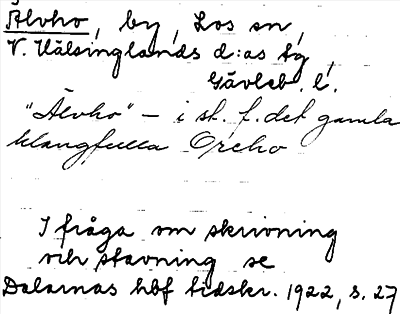 Älvho, by, Los sn,
V. Hälsinglands d:as tg,
Gävleb. l.
"Älvho" – i st. f. det gamla
klangfulla Oreho
I fråga om skrivning
och stavning se
Dalarnas hbf tidskr. 1922, s. 27